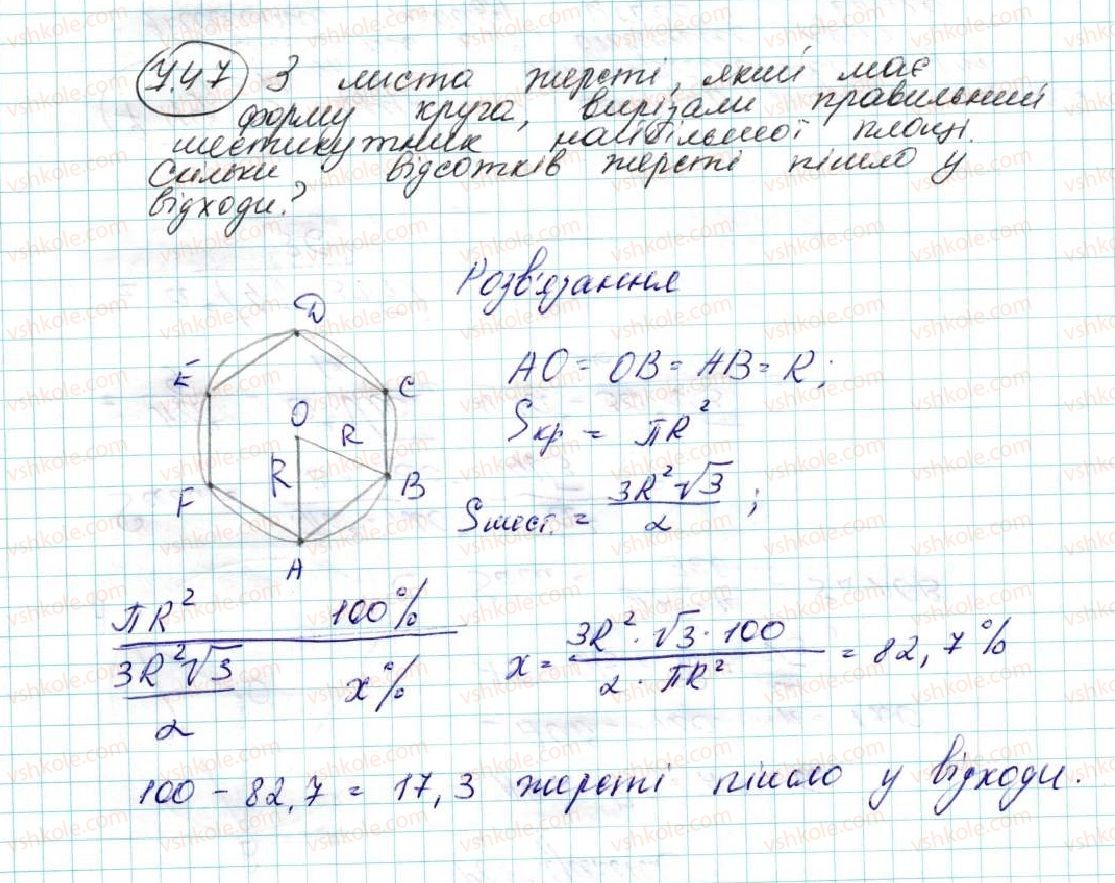 7.47 З листа жерсті, який має
форму круга, вирізали правильний
шестикутник найбільшої площі.
Скільки відсотків жерсті пішло у
відходи?
Розв'язання
D
E
C
O
R
R
F
B
A
AO = OB = AB = R;
Sкр = πR²
Sшест. = 3R²√3 / 2 ;
πR² 100%
3R²√3 / 2 x%
x = 3R² · √3 · 100 / 2 · πR² = 82,7%
100 - 82,7 = 17,3 жерсті пішло у відходи.